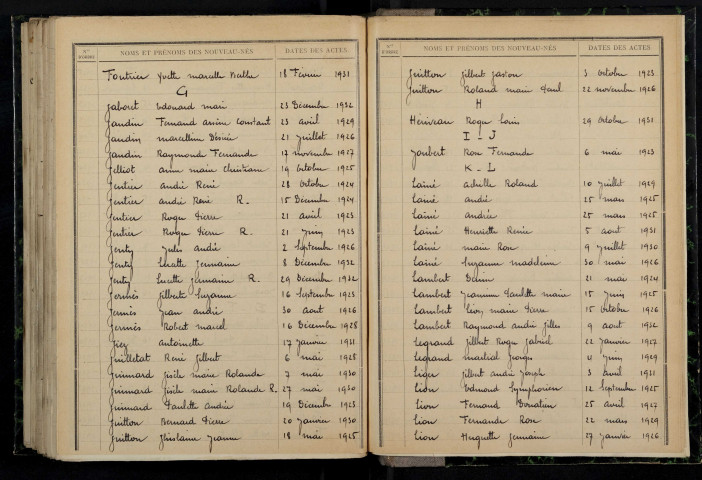 Nos D'ORDRE NOMS ET PRÉNOMS DES NOUVEAU-NÉS DATES DES ACTES
Fontrier Yvette marcelle 18 Février 1931
G
Gaboret Edouard marie 23 Décembre 1932
Gaudin Fernand arsène Constant 23 avril 1929
Gaudin marcelline Désirée 21 Juillet 1926
Gaudin Raymonde Fernande 17 novembre 1927
Gelliot anne marie christiane 19 octobre 1925
Gentier andré René 28 octobre 1924
Gentier andré René R. 15 Décembre 1924
Gentier Roger Pierre 21 avril 1923
Gentier Roger Pierre R. 21 Juin 1923
Genty Jules andré 2 Septembre 1926
Genty Lucette Germaine 8 Décembre 1932
Genty Lucette Germaine R. 29 Décembre 1932
Germès Gilberte Suzanne 16 Septembre 1923
Germès Jean andré 30 août 1926
Germès Robert marcel 16 Décembre 1928
antoinette 17 Janvier 1931
Guilletat René Gilbert 6 mai 1928
Guimard Gisèle marie Rolande 7 mai 1930
Guimard Gisèle marie Rolande R. 27 mai 1930
Guimard Paulette andrée 19 Décembre 1923
Guitton Bernard Pierre 20 Janvier 1930
Guitton Ghislaine Jeanne 18 mai 1925
Nos D'ORDRE NOMS ET PRÉNOMS DES NOUVEAU-NÉS DATES DES ACTES
Guitton Gilbert Gaston 3 octobre 1923
Guitton Roland marie Paul 22 novembre 1926
H
Hériveau Roger Louis 29 octobre 1931
I - J
Joubert Rose Fernande 6 mai 1923
K - L
Lainé achille Roland 10 Juillet 1929
Lainé andré 25 mars 1925
Lainé andrée 25 mars 1925
Lainé Henriette Renée 5 août 1931
Lainé marie Rose 9 Juillet 1930
Lainé Suzanne madeleine 30 mai 1926
Lambert 21 mai 1924
Lambert Jeannine Paulette marie 15 Juin 1925
Lambert Lévy marie Pierre 15 octobre 1926
Lambert Raymond andré Gilles 9 août 1932
Legrand Gilbert Roger Gabriel 22 Janvier 1927
Legrand martial Georges Juin 1929
Liger Gilbert andré Joseph 3 avril 1931
Lion Edmond Symphorien 12 Septembre 1925
Lion Fernand Donatien 25 avril 1927
Lion Fernande Rose 22 mars 1929
Lion Huguette Germaine 27 Janvier 1926